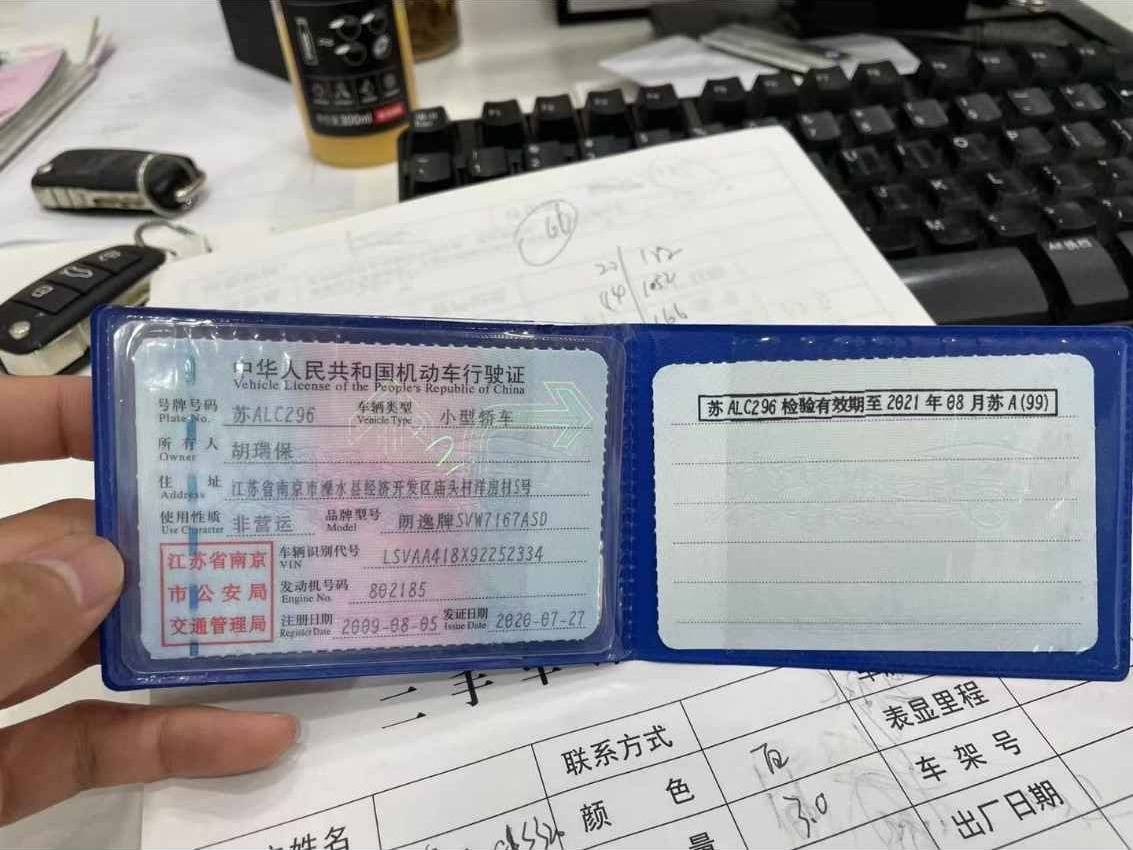 300ml
66
20 182
中华人民共和国机动车行驶证
Vehicle License of the People's Republic of China
号牌号码 苏ALC296 车辆类型 小型轿车
Plate No. Vehicle Type
所有人 胡瑞保
Owner
住址 江苏省南京市溧水县经济开发区庙头村洋房村5号
Address
使用性质 非营运 品牌型号 朗逸牌SVW7167ASD
Use Character Model
江苏省南京
市公安局
交通管理局
车辆识别代号 LSVAA418X92252334
VIN
发动机号码 802185
Engine No.
注册日期 2009-08-05 发证日期 2020-07-27
Register Date Issue Date
苏ALC296 检验有效期至 2021 年 08 月苏A(99)
二手车
联系方式
表显里程
颜色
车架号
3.0
出厂日期
姓名
量